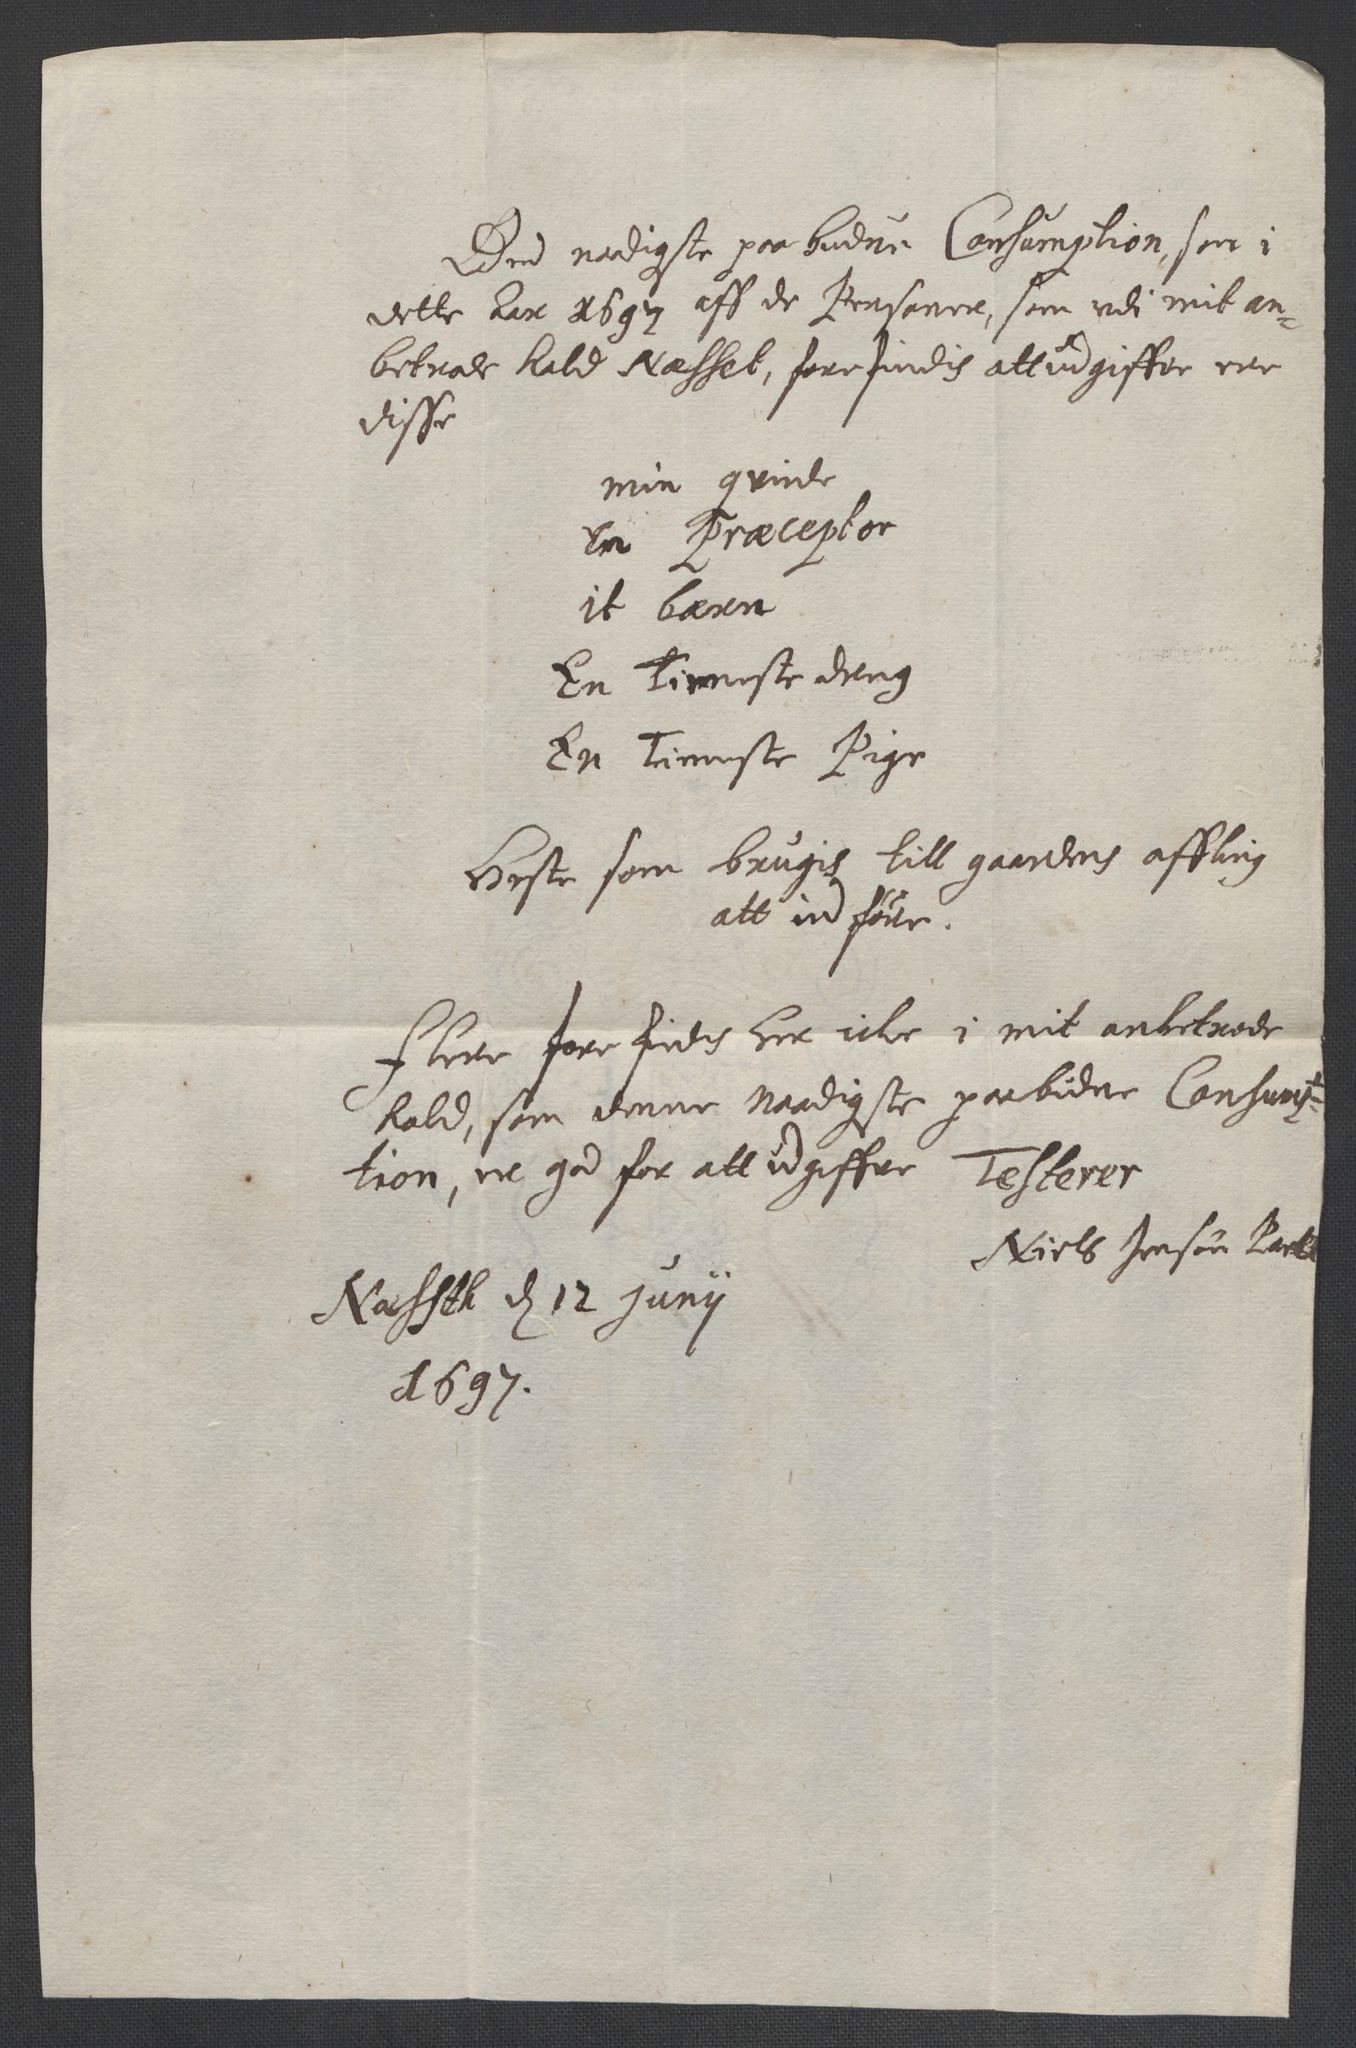 Den naadigste paabudne Consumption, som i
dette Aar 1697 aff de Personer, som udi mit an-
betrode kald Næsset, forefindis att udgiffve ere
disse
min qvinde
En Præceptor
it barn
En Tieneste dreng
En Tieneste Pige
Heste som brugis till gaardens affling
att indføre.
Flere forefindis her icke i mit anbetrode
kald, som denne naadigste paabudne Consump-
tion, er god for att udgiffve Testerer
Niels Jensøn
Næsseth d 12 Junij
1697.